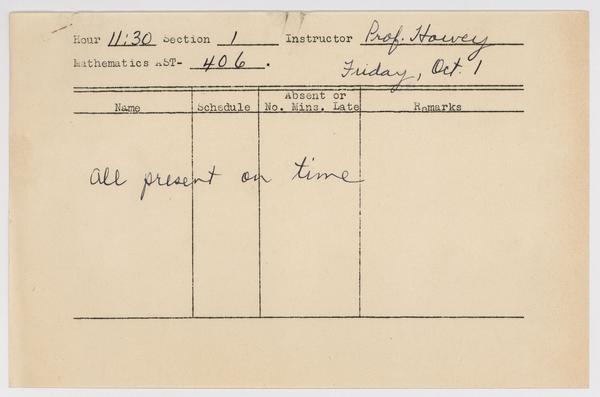 Hour 11:30 Section 1 Instructor Prof. Howey
Mathematics AST- 406.
Friday, Oct. 1
Name Schedule Absent or No. Mins. Late Remarks
All present on time